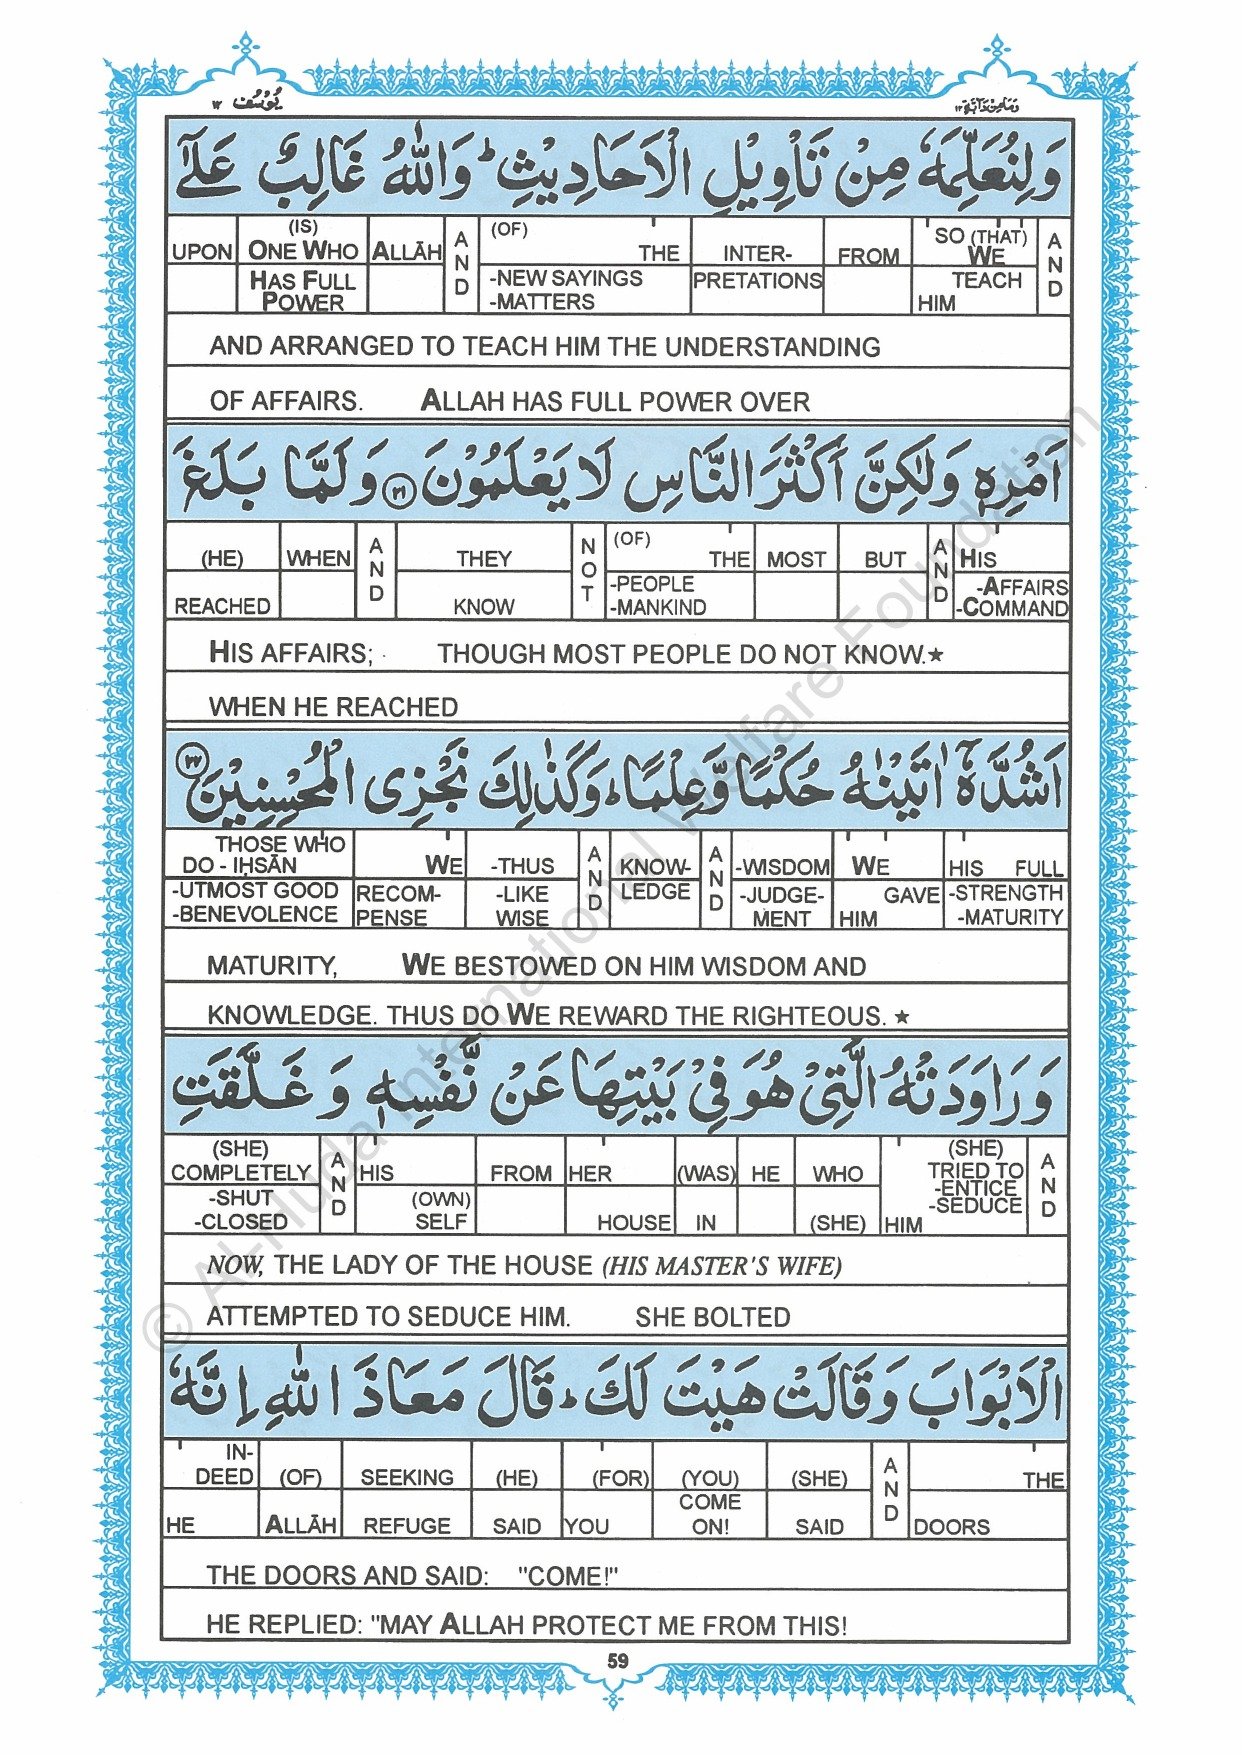 يُوسُف ١٢
وَمَا مِنْ دَآبَّةٍ ١٢
وَلِنُعَلِّمَهٗ مِنْ تَاْوِيْلِ الْاَحَادِيْثِ ؕ وَاللّٰهُ غَالِبٌ عَلٰٓى
UPON | (IS) ONE WHO HAS FULL POWER | ALLĀH | AND | (OF) THE -NEW SAYINGS -MATTERS | INTER- PRETATIONS | FROM | SO (THAT) WE TEACH HIM | AND
AND ARRANGED TO TEACH HIM THE UNDERSTANDING
OF AFFAIRS. ALLAH HAS FULL POWER OVER
اَمْرِهٖ وَلٰكِنَّ اَكْثَرَ النَّاسِ لَا يَعْلَمُوْنَ ٢١ وَلَمَّا بَلَغَ
(HE) REACHED | WHEN | AND | THEY KNOW | NOT | (OF) THE -PEOPLE -MANKIND | MOST | BUT | AND | HIS -AFFAIRS -COMMAND
HIS AFFAIRS; THOUGH MOST PEOPLE DO NOT KNOW.★
WHEN HE REACHED
اَشُدَّهٗٓ اٰتَيْنٰهُ حُكْمًا وَّعِلْمًا ؕ وَكَذٰلِكَ نَجْزِى الْمُحْسِنِيْنَ ٢٢
THOSE WHO DO - IḤSĀN -UTMOST GOOD -BENEVOLENCE | WE RECOM- PENSE | -THUS -LIKE WISE | AND | KNOW- LEDGE | AND | -WISDOM -JUDGE- MENT | WE GAVE HIM | HIS FULL -STRENGTH -MATURITY
MATURITY, WE BESTOWED ON HIM WISDOM AND
KNOWLEDGE. THUS DO WE REWARD THE RIGHTEOUS. ★
وَرَاوَدَتْهُ الَّتِىْ هُوَ فِىْ بَيْتِهَا عَنْ نَّفْسِهٖ وَغَلَّقَتِ
(SHE) COMPLETELY -SHUT -CLOSED | AND | HIS (OWN) SELF | FROM | HER HOUSE | (WAS) IN | HE | WHO (SHE) | (SHE) TRIED TO -ENTICE -SEDUCE HIM | AND
NOW, THE LADY OF THE HOUSE (HIS MASTER'S WIFE)
ATTEMPTED TO SEDUCE HIM. SHE BOLTED
الْاَبْوَابَ وَقَالَتْ هَيْتَ لَكَ ؕ قَالَ مَعَاذَ اللّٰهِ اِنَّهٗ
IN- DEED HE | (OF) ALLĀH | SEEKING REFUGE | (HE) SAID | (FOR) YOU | (YOU) COME ON! | (SHE) SAID | AND | THE DOORS
THE DOORS AND SAID: "COME!"
HE REPLIED: "MAY ALLAH PROTECT ME FROM THIS!
59
© Al-Huda International Welfare Foundation